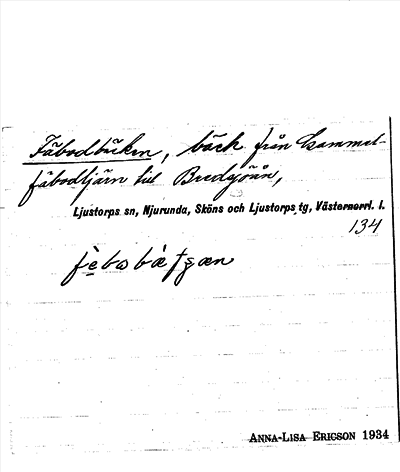 Fäbodbäcken, bäck från Gammel-
fäbodtjärn till Bredsjön,
Ljustorps sn, Njurunda, Sköns och Ljustorps tg, Västernorrl. l.
134
ANNA-LISA ERICSON 1934